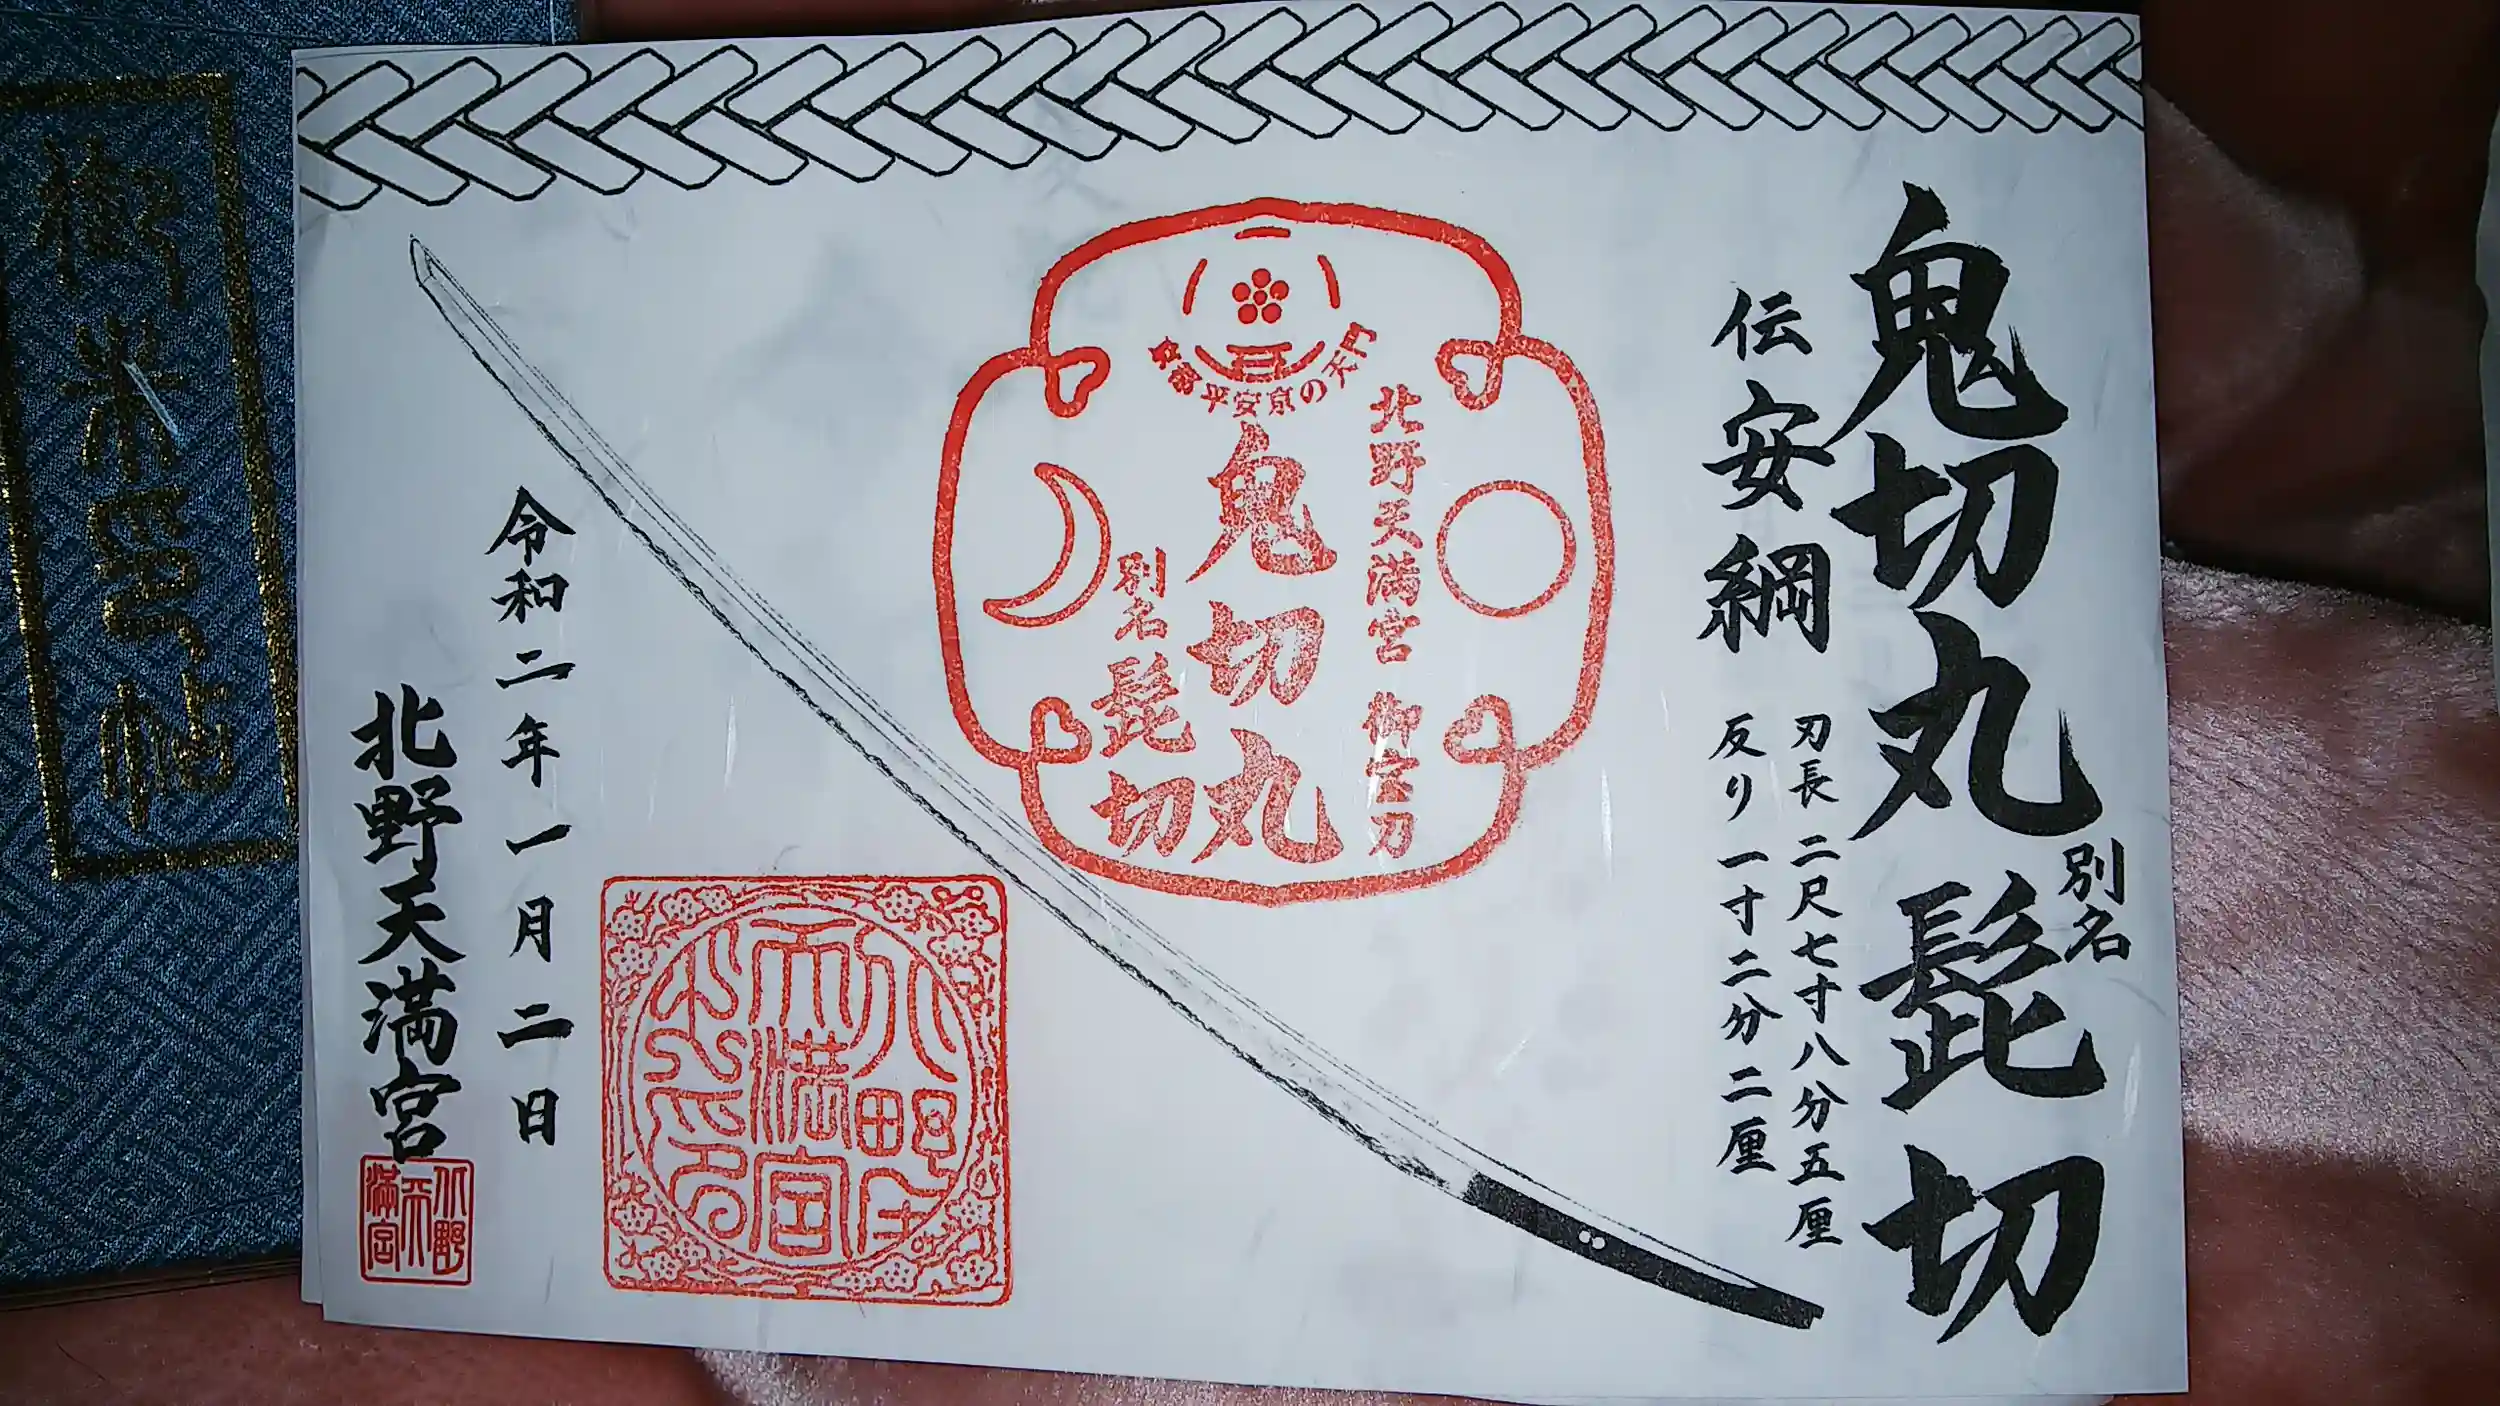 鬼切丸
別名
髭切
伝安綱
刃長 二尺七寸八分五厘
反り 一寸二分二厘
平安京の天門
北野天満宮 御宝刀
鬼切丸
別名
髭切
令和二年一月二日
北野天満宮
北野天満宮
御朱印帖